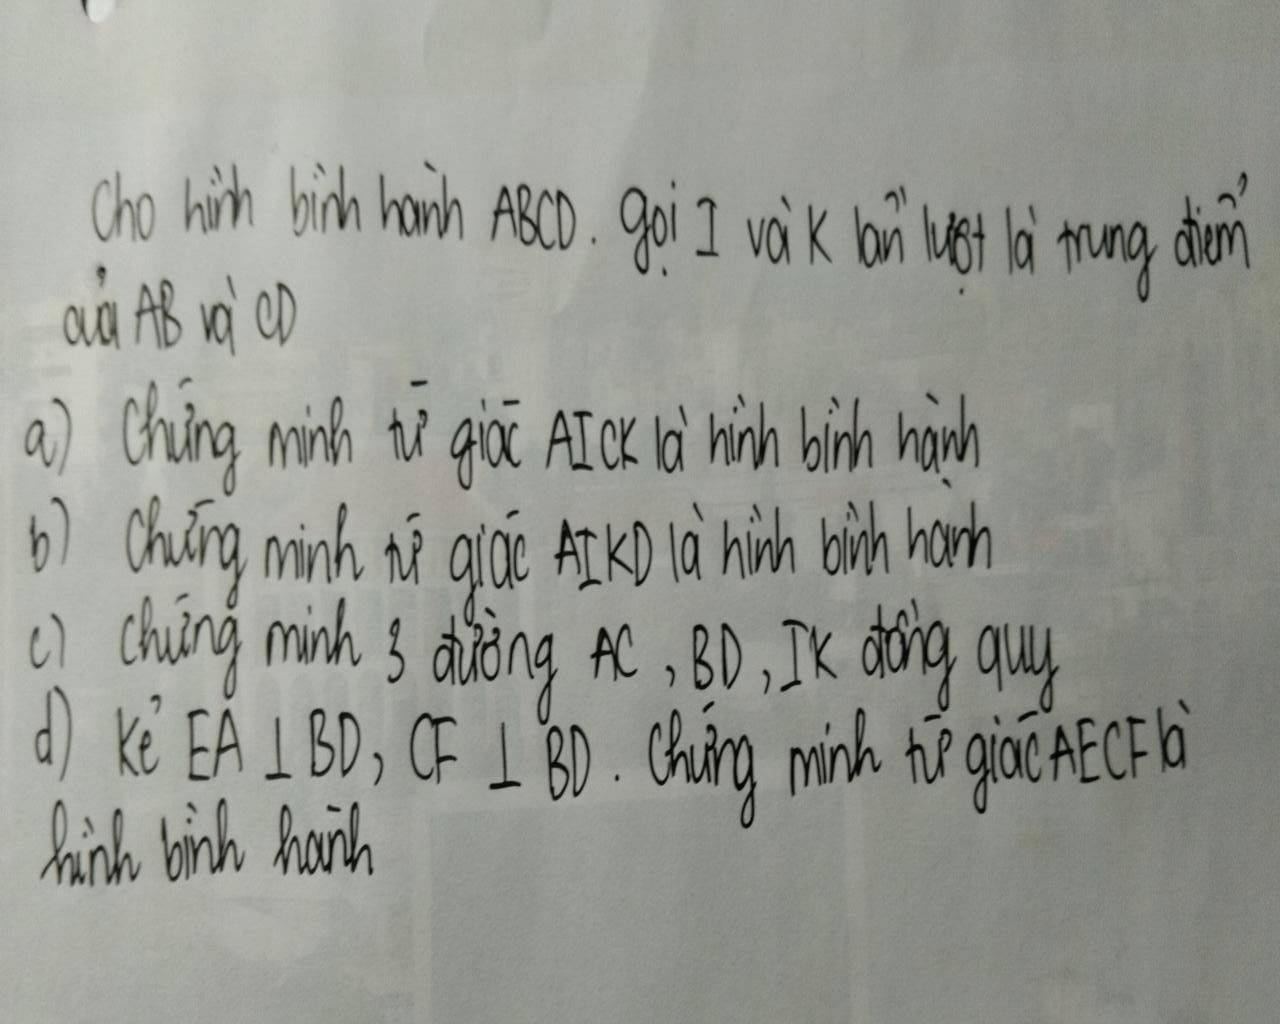 Cho hình bình hành ABCD. Gọi I và K lần lượt là trung điểm
của AB và CD
a) Chứng minh tứ giác AICK là hình bình hành
b) Chứng minh tứ giác AIKD là hình bình hành
c) Chứng minh 3 đường AC, BD, IK đồng quy
d) Kẻ EA ⊥ BD, CF ⊥ BD. Chứng minh tứ giác AECF là
hình bình hành